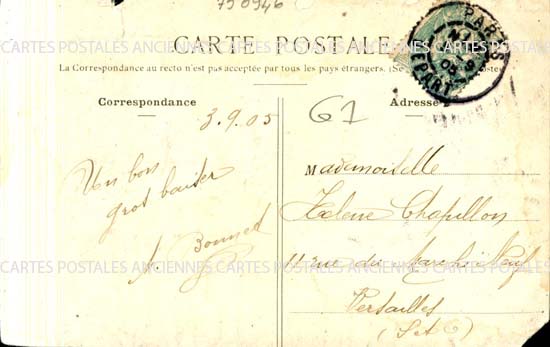 750946
CARTE POSTALE
La Correspondance au recto n'est pas acceptée par tous les pays étrangers. (Se
Correspondance
Adresse
61
3.9.05
Un bon
gros baiser
Mademoiselle
Helene Chapillon
11 rue du Marché Neuf
Versailles
(S et O)
PARIS
DEPART
CARTES POSTALES ANCIENNES CARTES POSTALES ANCIENNES CARTES POSTALES ANCIENNES
CARTES POSTALES ANCIENNES CARTES POSTALES ANCIENNES CARTES POSTALES ANCIENNES